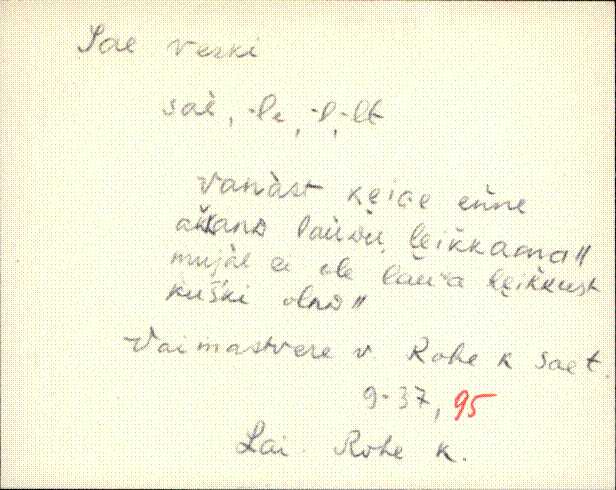 Sae veski
saè, -le, -l, -lt
vanàst keiɢe eǹne
akkanᴅ laùᴅu leikkama"
mujàl ei ole laùᴅa leikkust
kuski olnᴅ"
Vaimastvere v Rohe k saet.
9-37, 95
Lai. Rohe k.